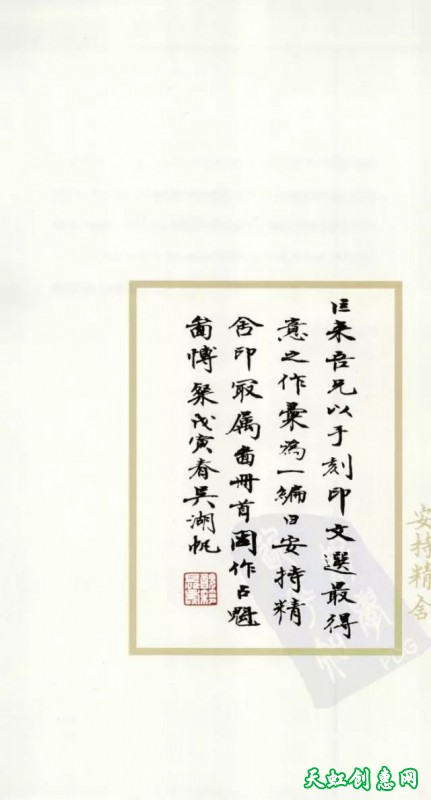 巨来吾兄以手刻印文选最得
意之作彙為一編曰安持精
舍印冣属畵冊首图作占魁
畵博粲戊寅春吴湖帆
安持精舍
PDG
天虹创惠网